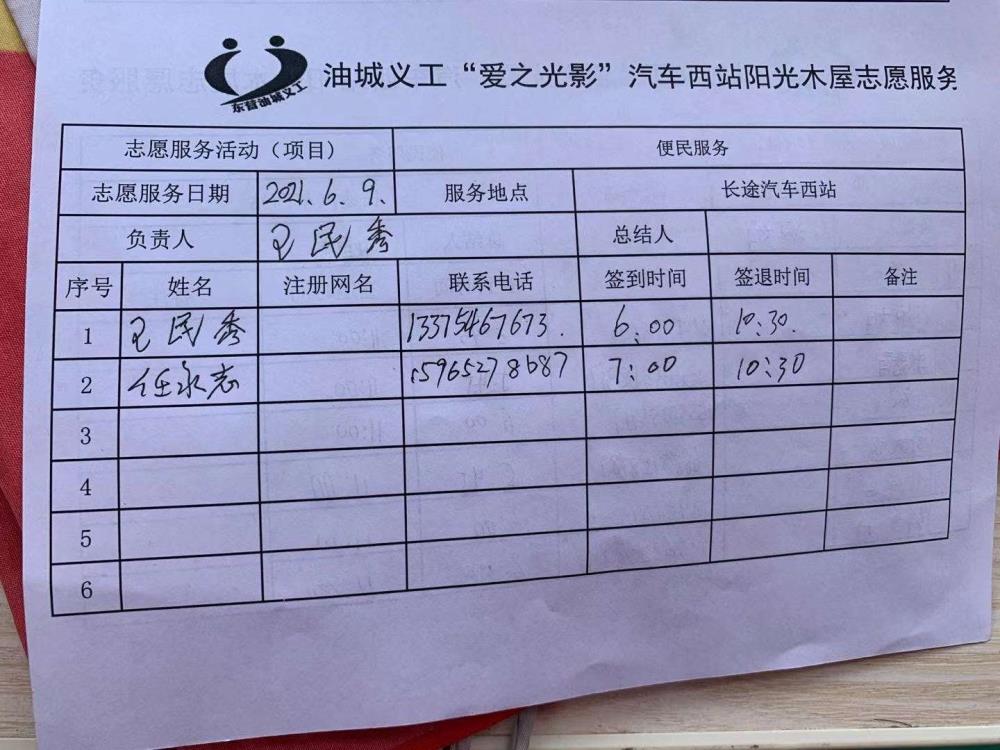 东营油城义工
油城义工“爱之光影”汽车西站阳光木屋志愿服务
志愿服务活动（项目） 便民服务
志愿服务日期 2021.6.9. 服务地点 长途汽车西站
负责人 王民秀 总结人
序号 姓名 注册网名 联系电话 签到时间 签退时间 备注
1 王民秀 13375467673. 6:00 10:30.
2 任永志 15965278687 7:00 10:30
3
4
5
6